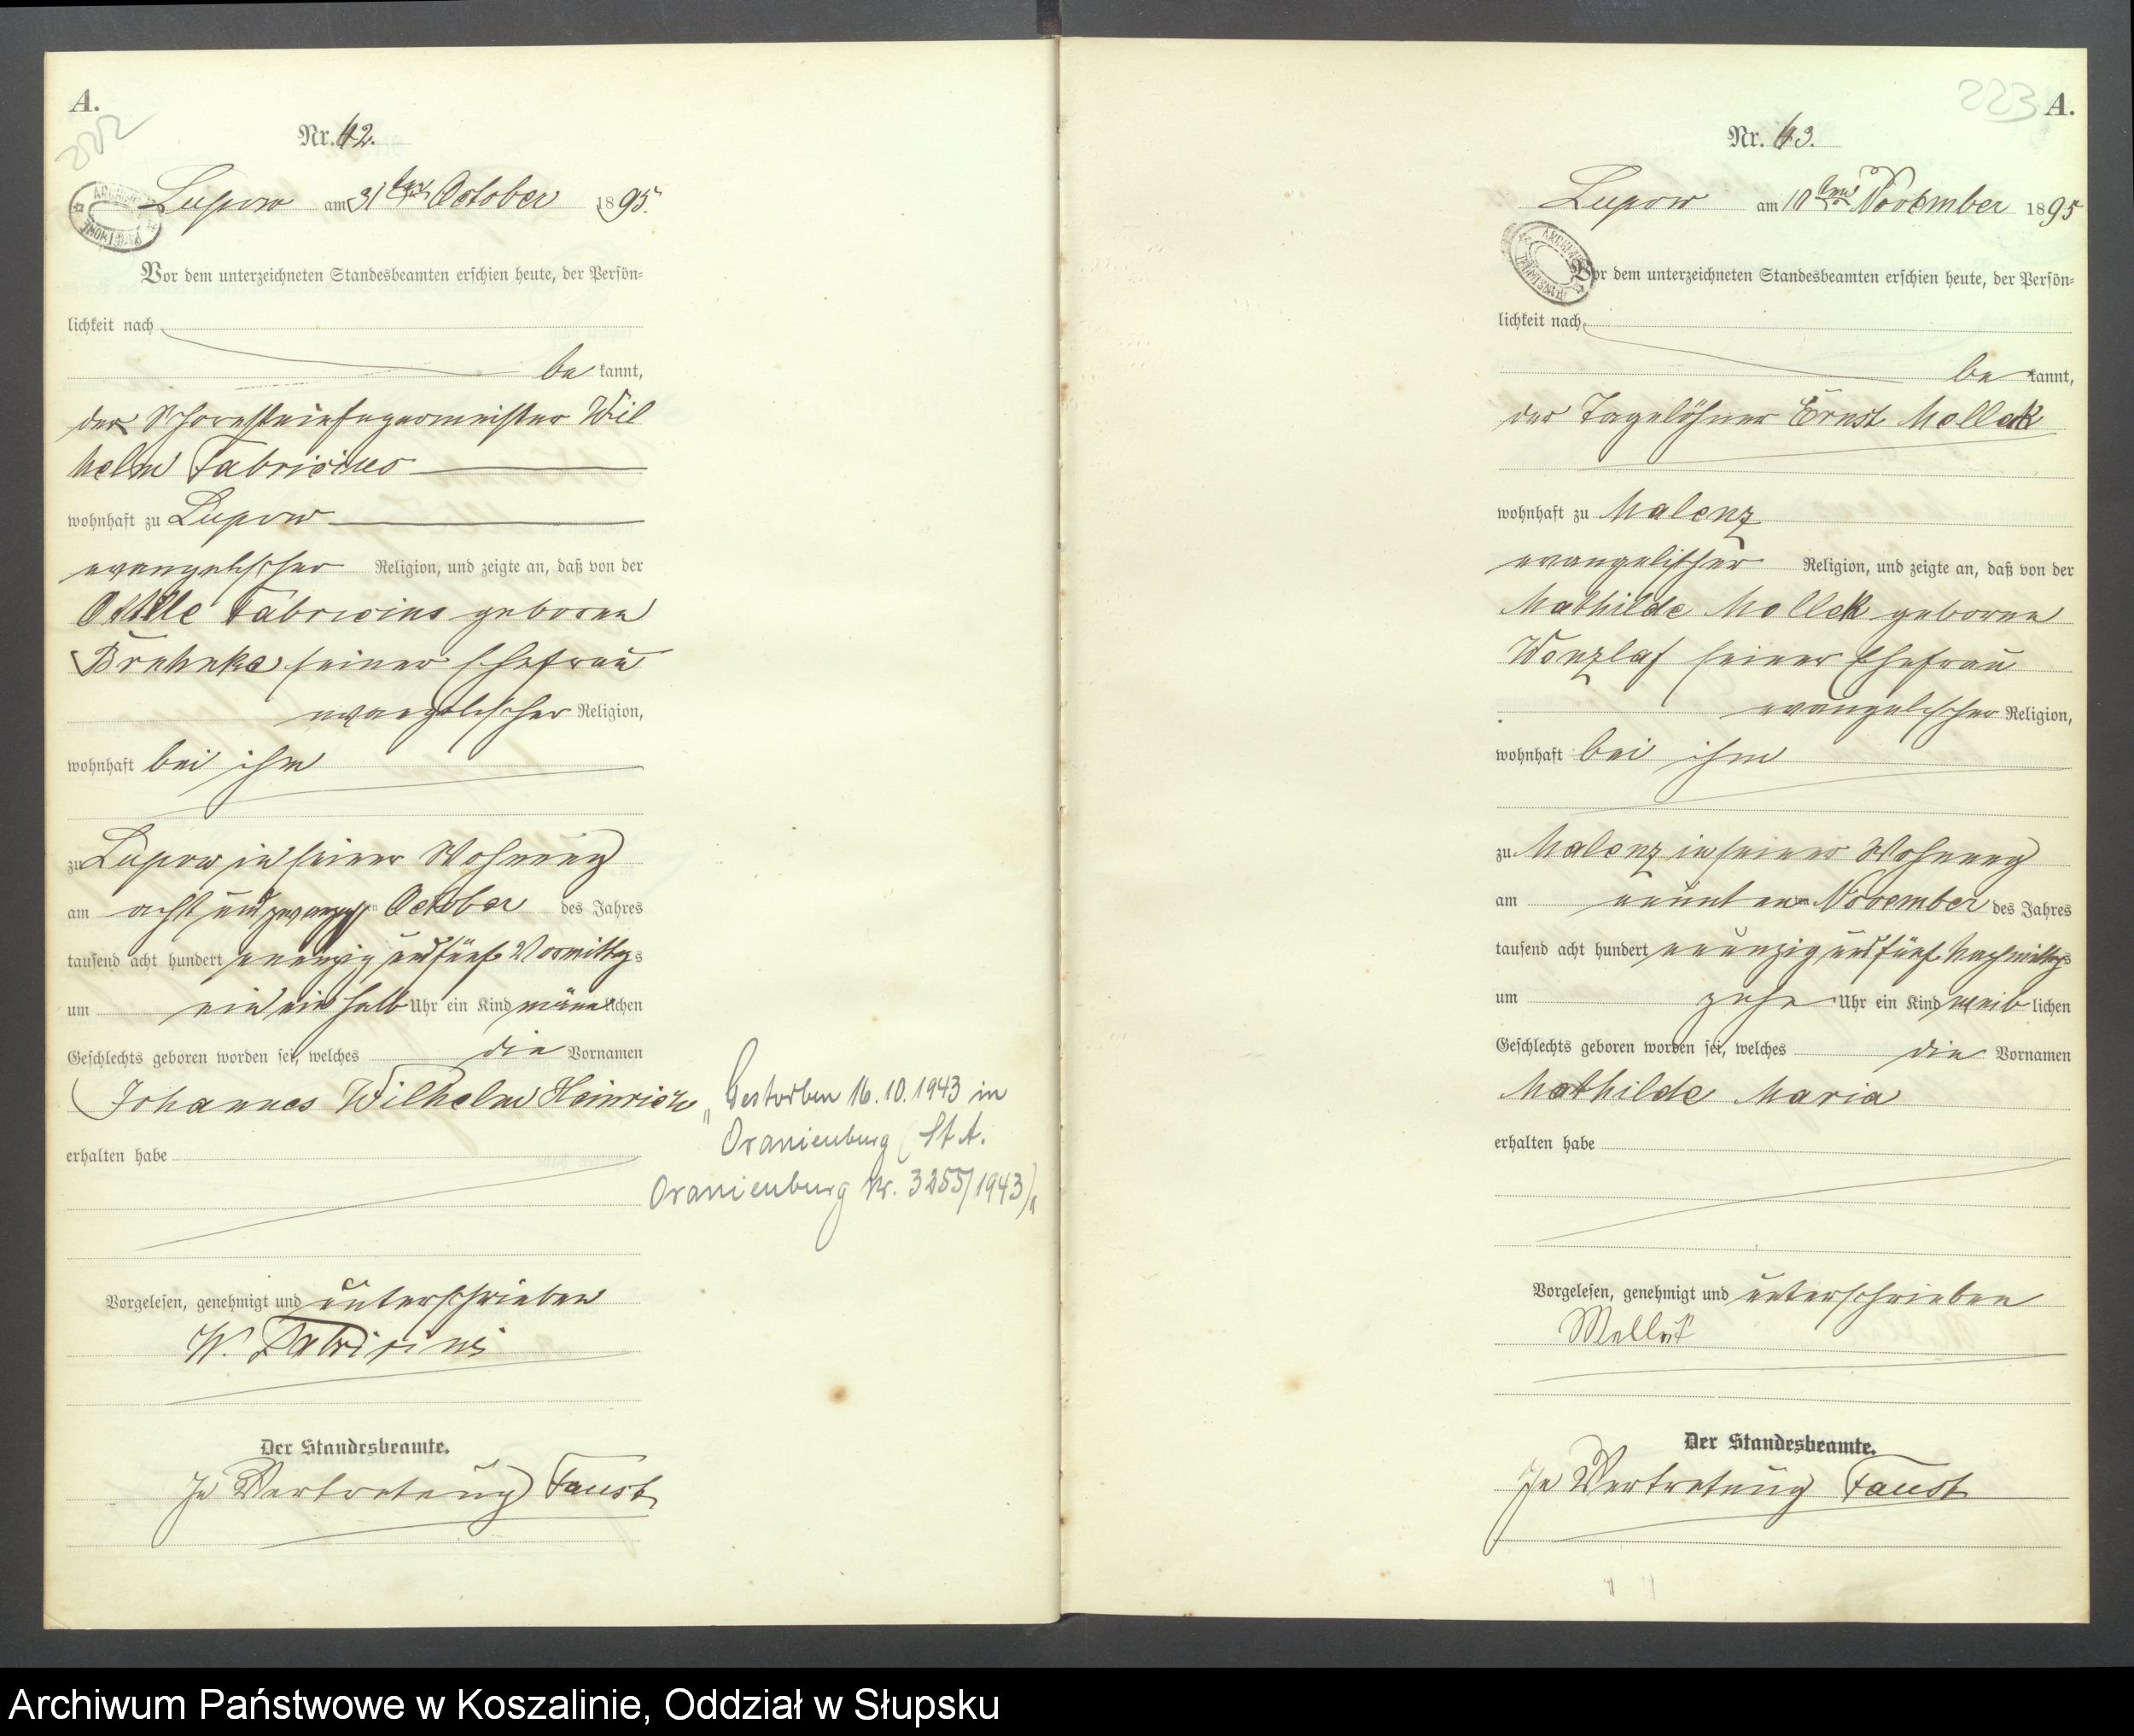 A.
222
Nr. 62.
Lupow am 31ten October 1895.
Vor dem unterzeichneten Standesbeamten erschien heute, der Persön=
lichkeit nach
be kannt,
der Schornsteinfegermeister Wil
helm Fabricius
wohnhaft zu Lupow
evangelischer Religion, und zeigte an, daß von der
Ottilie Fabricius geboren
seiner Ehefrau
evangelischer Religion,
wohnhaft bei ihm
zu Lupow in seiner Wohnung
am acht und zwanzigsten October des Jahres
tausend acht hundert neunzig und fünf Vormittags
um ein ein halb Uhr ein Kind männlichen
Geschlechts geboren worden sei, welches die Vornamen
Johannes Wilhelm Heinrich
erhalten habe
"Gestorben 16.10.1943 in
Oranienburg (St A.
Oranienburg Nr. 3255/1943)"
Vorgelesen, genehmigt und unterschrieben
W. Fabricius
Der Standesbeamte.
In Vertretung Faust
223
A.
Nr. 63.
Lupow am 10ten November 1895
Vor dem unterzeichneten Standesbeamten erschien heute, der Persön=
lichkeit nach
be kannt,
der Tagelöhner Ernst Mollek
wohnhaft zu Malenz
evangelischer Religion, und zeigte an, daß von der
Mathilde Mollek geboren
Wenzlaf seiner Ehefrau
evangelischer Religion,
wohnhaft bei ihm
zu Malenz in seiner Wohnung
am neunten November des Jahres
tausend acht hundert neunzig und fünf Nachmittags
um zehn Uhr ein Kind weiblichen
Geschlechts geboren worden sei, welches die Vornamen
Mathilde Maria
erhalten habe
Vorgelesen, genehmigt und unterschrieben
Der Standesbeamte.
In Vertretung Faust
Archiwum Państwowe w Koszalinie, Oddział w Słupsku